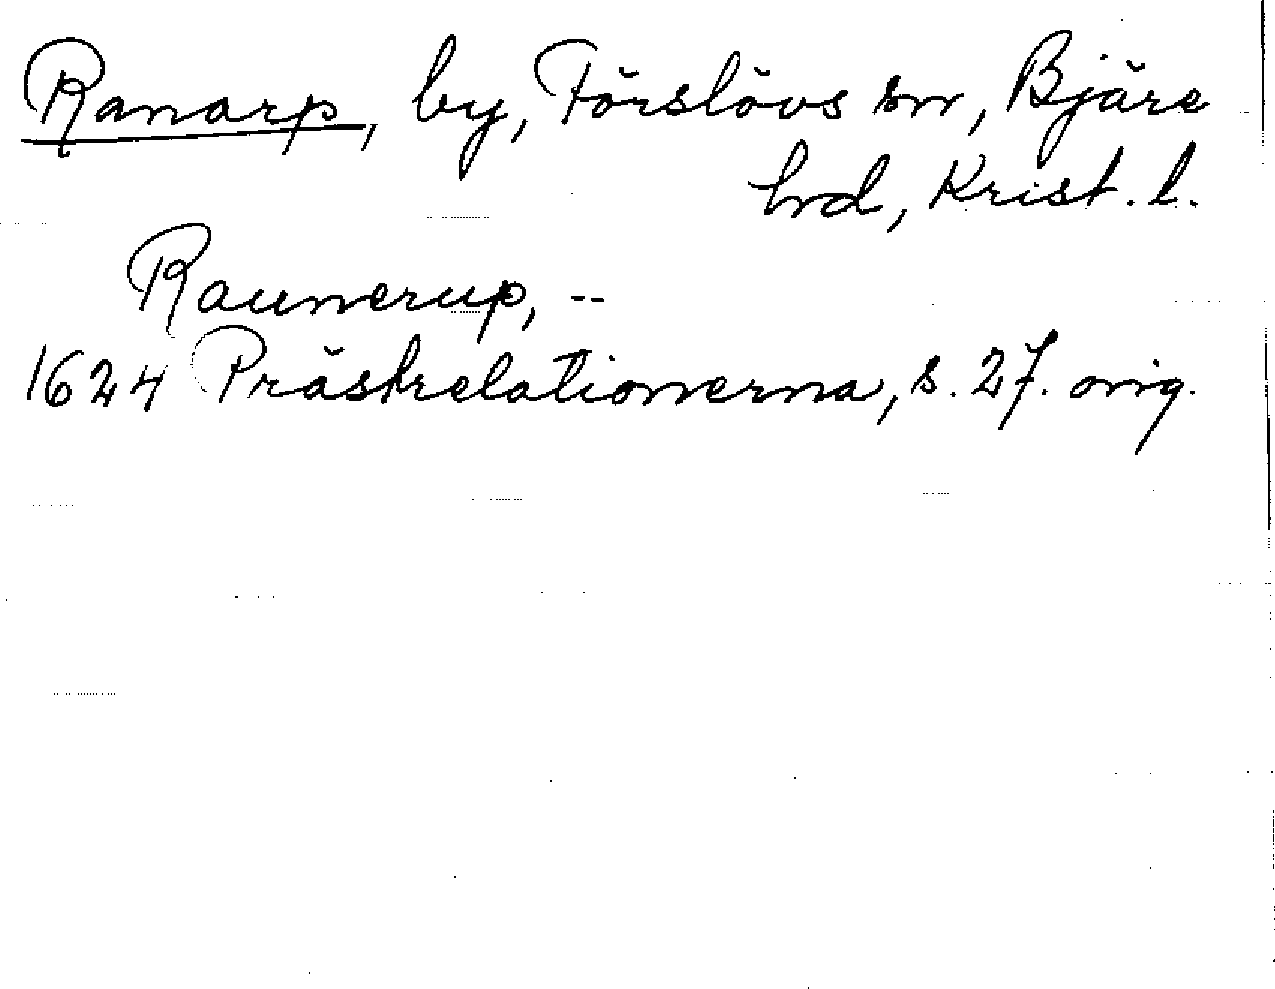 Ranarp, by, Förslövs sn, Bjäre
hd, Krist. l.
Raunerup, --
1624 Prästrelationerna, s. 27. orig.